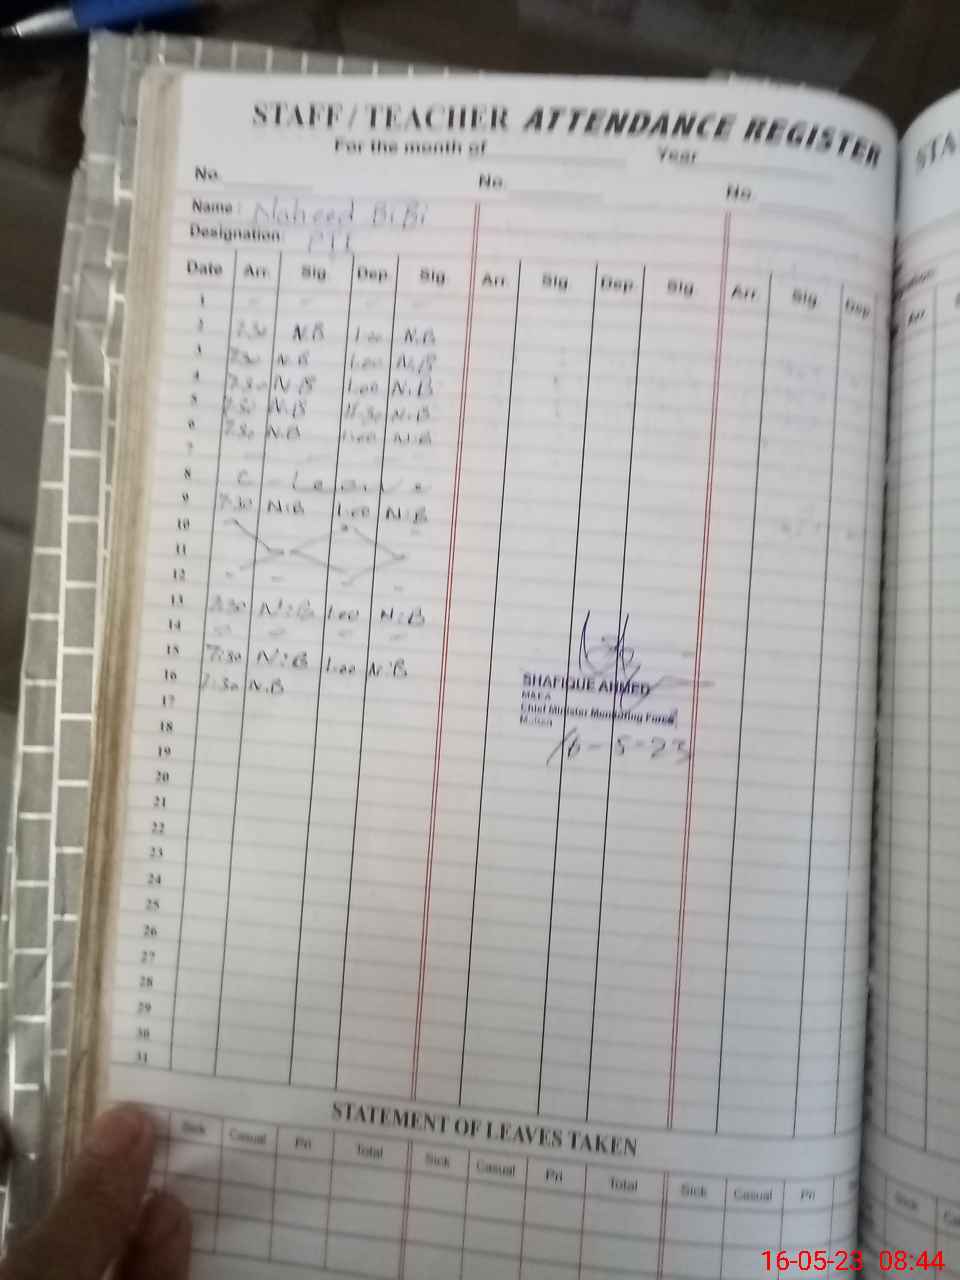 STAFF / TEACHER ATTENDANCE REGISTER
For the month of Year
No. No. No.
Name: Naheed BiBi
Designation:
Date Arr. Sig. Dep. Sig. Arr. Sig. Dep. Sig. Arr. Sig. Dep.
1 - - - -
2 7.30 N.B 1.00 N.B
3 7.30 N.B 1.00 N.B
4 7.30 N.B 1.00 N.B
5 7.30 N.B 11.30 N.B
6 7.30 N.B 1.00 N.B
7
8 C - Leave
9 7.30 N.B 1.00 N.B
10
11
12 - - - -
13 7.30 N.B 1.00 N.B
14 - - - -
15 7:30 N.B 1.00 N.B
16 7:30 N.B
17
18
19
20
21
22
23
24
25
26
27
28
29
30
31
SHAFIQUE AHMED
MAEA
Chief Minister Monitoring Force
Multan
16-5-23
STATEMENT OF LEAVES TAKEN
Sick Casual Pri Total Sick Casual Pri Total Sick Casual Pri
STA
Arr
Sick
16-05-23 08:44